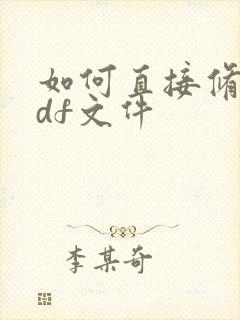 如何直接修
df文件
李某奇